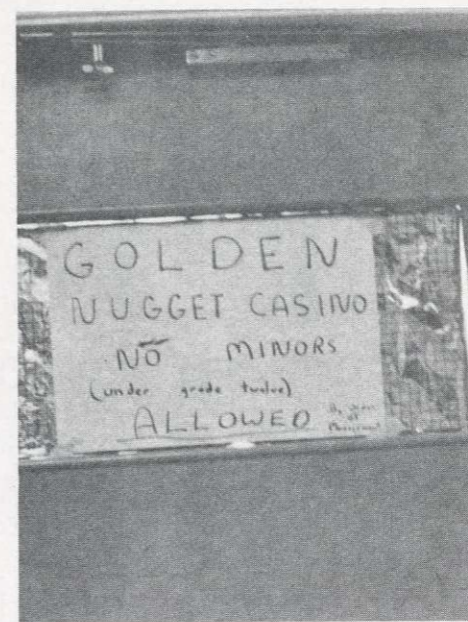 GOLDEN
NUGGET CASINO
NO MINORS
(under grade twelve)
ALLOWED
of